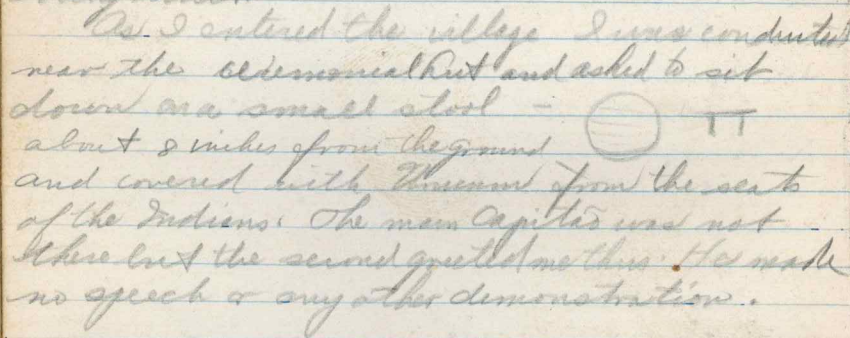 As I entered the village I was conducted
near the ceremonial hut and asked to sit
down on a small stool —
about 8 inches from the ground
and covered with from the seats
of the Indians. The main Capitão was not
there but the second greeted me thus. He made
no speech or any other demonstration.